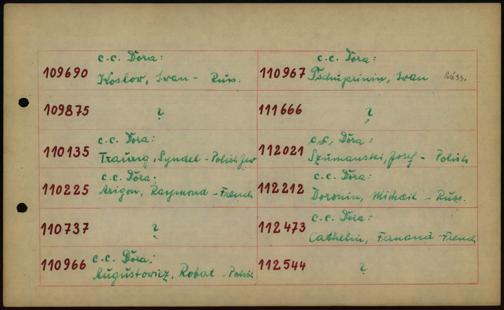 109690 c.c. Dora:
Koslow, Iwan - Russ.
109875 ?
110135 c.c. Dora:
Traurig, Syndel - Polish Jew
110225 c.c. Dora:
Arigon, Raymond - French
110737 ?
110966 c.c. Dora:
Augustowicz, Robat - Polish
110967 c.c. Dora:
Tschuprinin, Iwan Russ.
111666 ?
112021 c.c. Dora:
Szumanski, Josef - Polish
112212 c.c. Dora:
Doronin, Mikhail - Russ.
112473 c.c. Dora:
Cathelin, Fernand - French
112544 ?